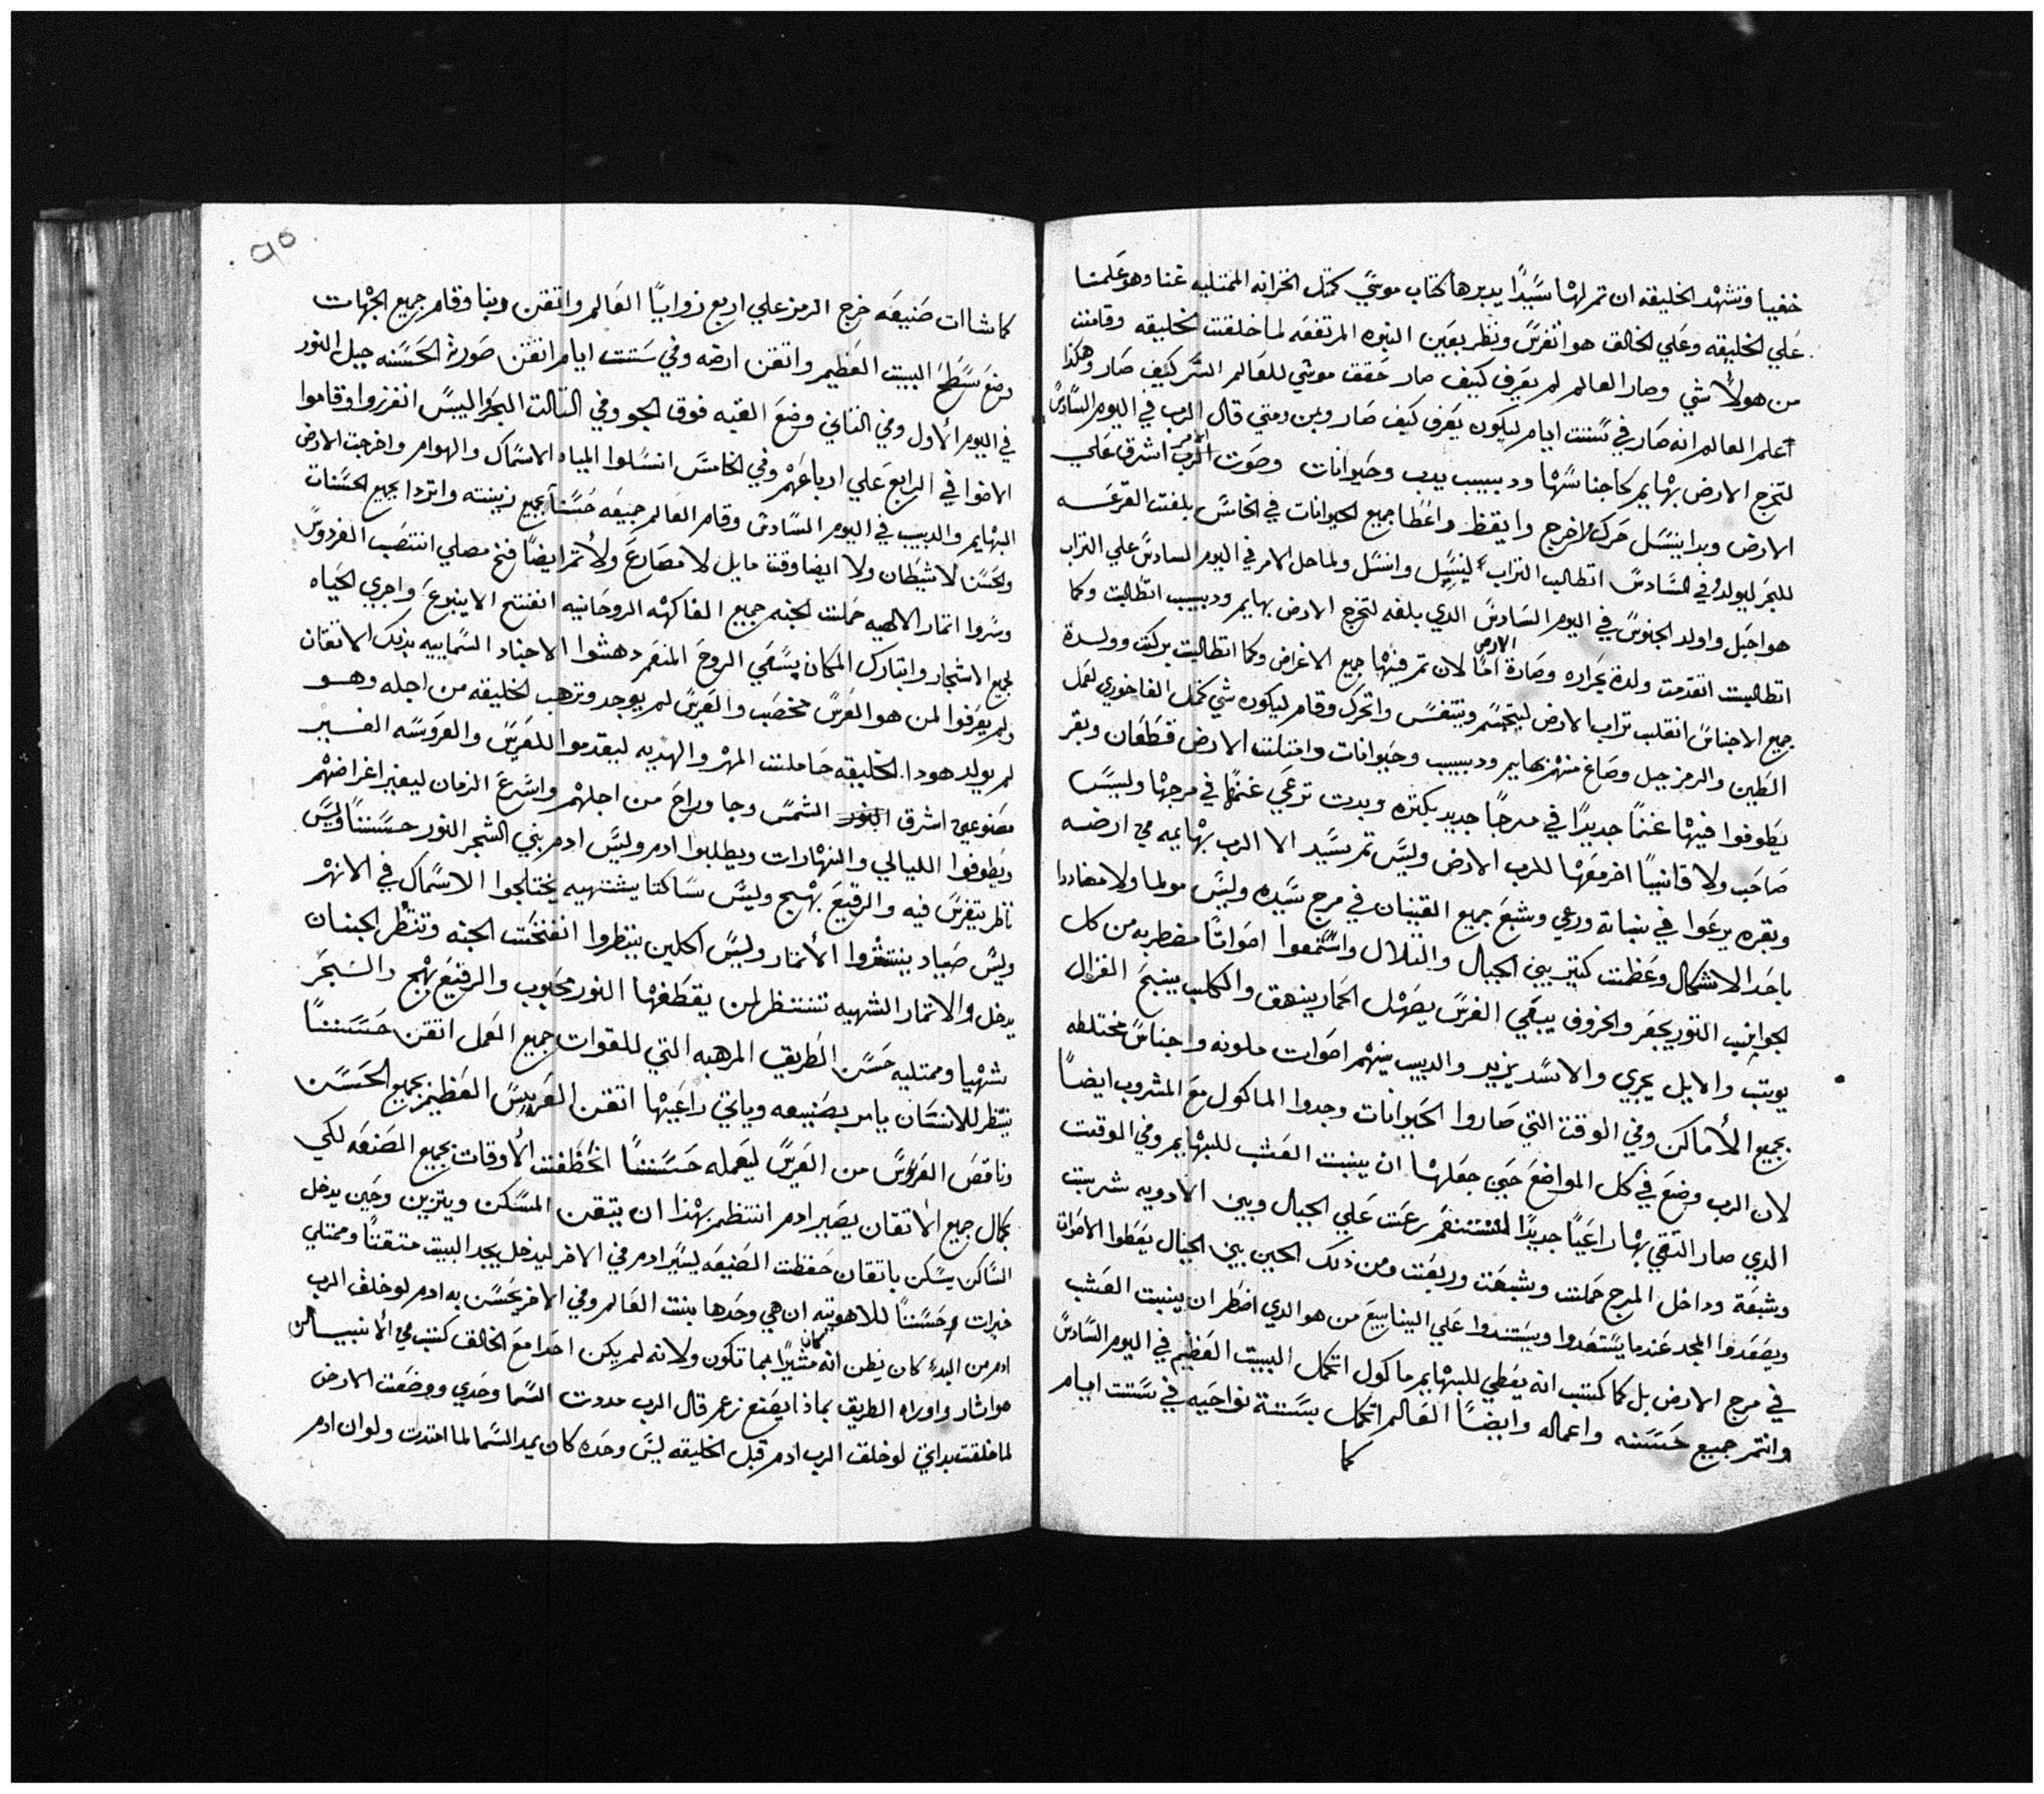 خفيا وتشهد الخليقه ان تم لها سيدًا يدبرها كتاب موسي كمتل الخزانه الممتليه غنا وهو علمنا
علي الخليقه وعلي الخالق هو اتفرس ونظر بعين النبوه المرتفعه لما خلقت الخليقه وقامت
من هولاً شي وصار العالم لم يعرف كيف صار حقق موسي للعالم السر كيف صار وهكذا
اعلم العالم انه صار في ستت ايام ليكون يعرف كيف صار وبمن ومتي قال الرب في اليوم السادس
لتخرج الارض بهايم كاجناسها ودبيب يدب وحيوانات وصوت الرب الامر اشرق علي
الارض وبدا ينسل حرك واخرج وايقظ واعطا جميع الحيوانات في الخامس بلغت القرعه
للبحر ليولد وفي السادس اتطالب التراب لينسل وانسل ولما حل الامر في اليوم السادس علي التراب
هو احبل واولد الجنوس في اليوم السادس الدي بلغه لتخرج الارض بهايم ودبيب اتطالبت وكما
اتطالبت اتقدمت ولدة بحراره وصارة الارض امًا لان تم فيها جميع الاغراض وكما اتطالبت بركت وولدة
جميع الاجناس انقلب تراب الارض ليتجسم ويتنفس واتحرك وقام ليكون شي كمتل الفاخوري لعمل
الطين والرمز جبل وصاغ منهم بهايم ودبيب وحيوانات وامتلت الارض قطعان وبقر
يطوفوا فيها غنمًا جديدًا في مرجًا جديد بكتره وبدت ترعي غنمًا في مرجها وليس
صاحب ولا قانيًا اخر معها للرب الارض وليس تم سيد الا الرب بهايمه في ارضه
وبقره يرعوا في نباتة ورعي وشبع جميع القنيان في مرج سيده وليس مولما ولا مضاددا
باحد الاشكال وعظمت كتير بين الجبال والتلال واستمعوا اصواتًا مضطربه من كل
الجوانب التور يجعر والخروف يبقي الفرس يصهل الحمار ينهق والكلب ينبح الغزال
يوتب والايل يجري والاسد يزير والدبيب ينهم اصوات ملونه واجناس مختلطه
بجميع الأماكن وفي الوقت التي صاروا الحيوانات وجدوا الماكول مع المشروب ايضًا
لان الرب وضع في كل المواضع حين جعلها ان ينبت العشب للبهايم وفي الوقت
الدي صار التقي بها راعيًا جديدًا رعت علي الجبال وبين الاوديه شربت
وشبعة وداخل المرج حملت وشبعت وربعت ومن ذلك الحين بين الجبال يعطوا الاصوات
ويصعدوا المجد عندما يستعدوا ويستندوا علي الينابيع من هو الدي اضطر ان ينبت العشب
في مرج الارض بل كما كتب انه يعطي للبهايم ماكول اتكمل البيت العظيم في اليوم السادس
واتتم جميع حسنه واعماله وايضًا العالم اتكمل بستة نواحيه في ستت ايام
كما
٩٥
كما شاات صنيعه خرج الرمز علي اربع زوايا العالم واتقن وبنا وقام جميع الجهات
وضع سطح البيت العظيم واتقن ارضه وفي ستت ايام اتقن صورة الحسنه جبل النور
في اليوم الأول وفي التاني وضع القبه فوق الجو وفي التالت البحر واليبس انفرزوا وقاموا
الاضوا في الرابع علي ارباعهم وفي الخامس انسلوا المياه الاسماك والهوام واخرجت الارض
البهايم والدبيب في اليوم السادس وقام العالم جميعه حسنًا بجميع زينته واتردا بجميع الحسنات
والحسن لا شيطان ولا ايضا وقت مايل لا مصارع ولا تم ايضًا فخ مصلي انتصب الفردوس
وسروا اتمار الالهيه حملت الجنه جميع الفاكهه الروحانيه انفتح الاينبوع واجري الحياه
لجميع الاشجار واتبارك المكان يسعي الروح المنعم دهشوا الاجناد السماييه بذلك الاتقان
ولم يعرفوا لمن هو العرس مخصب والعرس لم يوجد وترهب الخليقه من اجله وهو
لم يولد هودا الخليقه حاملت المهر والهديه ليقدموا للعرس والعروسه الغير
مصنوعين اشرق الشمس وجا وراح من اجلهم واسرع الزمان ليغير اغراضهم
ويطوفوا الليالي والنهارات ويطلبوا ادم وليس ادم بين الشجر النور حسننًا وليس
ناظر يتفرس فيه والرقيع بهج وليس ساكتا يشتهيه يختلجوا الاسماك في الانهر
وليس صياد ينتشروا الأتمار وليس اكلين ينظروا انفتحت الجنه وتنتظر الجنان
يدخل والاتمار الشهيه تنتظر لمن يقطفها النور محبوب والرقيع بهج والشجر
شهيا وممتليه حسن الطريق المرهبه التي للقوات جميع العمل اتقن حسننًا
ينتظر للانسان يامر بصنيعه وياتي راعيها اتقن العريس العظيم بجميع الحسن
وناقص العروس من العرس ليعمله حسننًا اتحفظت الأوقات بجميع الصنعه لكي
بكمال جميع الاتقان يصير ادم انتظم بهذا ان يتقن المسكن ويتزين وحين يدخل
الساكن يسكن باتقان حفظت الصنيعه ليسير ادم في الاخر ليدخل يجد البيت متقنًا وممتلي
خيرات وحسننًا للاهوتيه ان هي وحدها بنت العالم وفي الاخر يحسن به ادم لو خلق الرب
ادم من البدء كان يظن انه كان مشيرًا بما تكون ولانه لم يكن احدا مع الخالق كتب في الأنبيا لمن
هو اشار واوراه الطريق بماذا يصنع زعم قال الرب مددت السما وحدي ووضعت الارض
لما خلقت بداتي لو خلق الرب ادم قبل الخليقه ليس وحده كان يمد السما لما امتدت ولو ان ادم